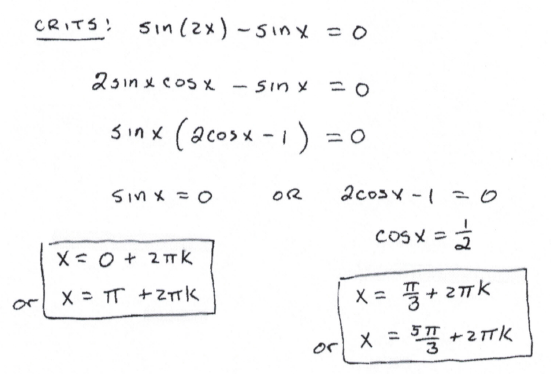 CRITS: sin(2x) - sin x = 0
2 sin x cos x - sin x = 0
sin x (2cos x - 1) = 0
sin x = 0 OR 2cos x - 1 = 0
cos x = 1/2
x = 0 + 2πk
or x = π + 2πk
x = π/3 + 2πk
or x = 5π/3 + 2πk